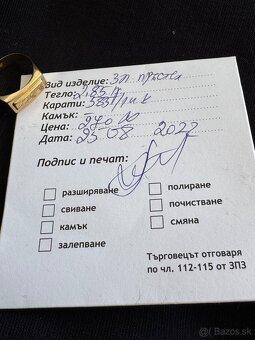 Вид изделие: Зл. пръстен
Тегло: 2,85 г
Карати: 585/14 к
Камък: —
Цена: 270 лв
Дата: 23 08 2022
Подпис и печат:
разширяване
полиране
свиване
почистване
камък
смяна
залепване
Търговецът отговаря
по чл. 112-115 от ЗПЗ
bazar.sk